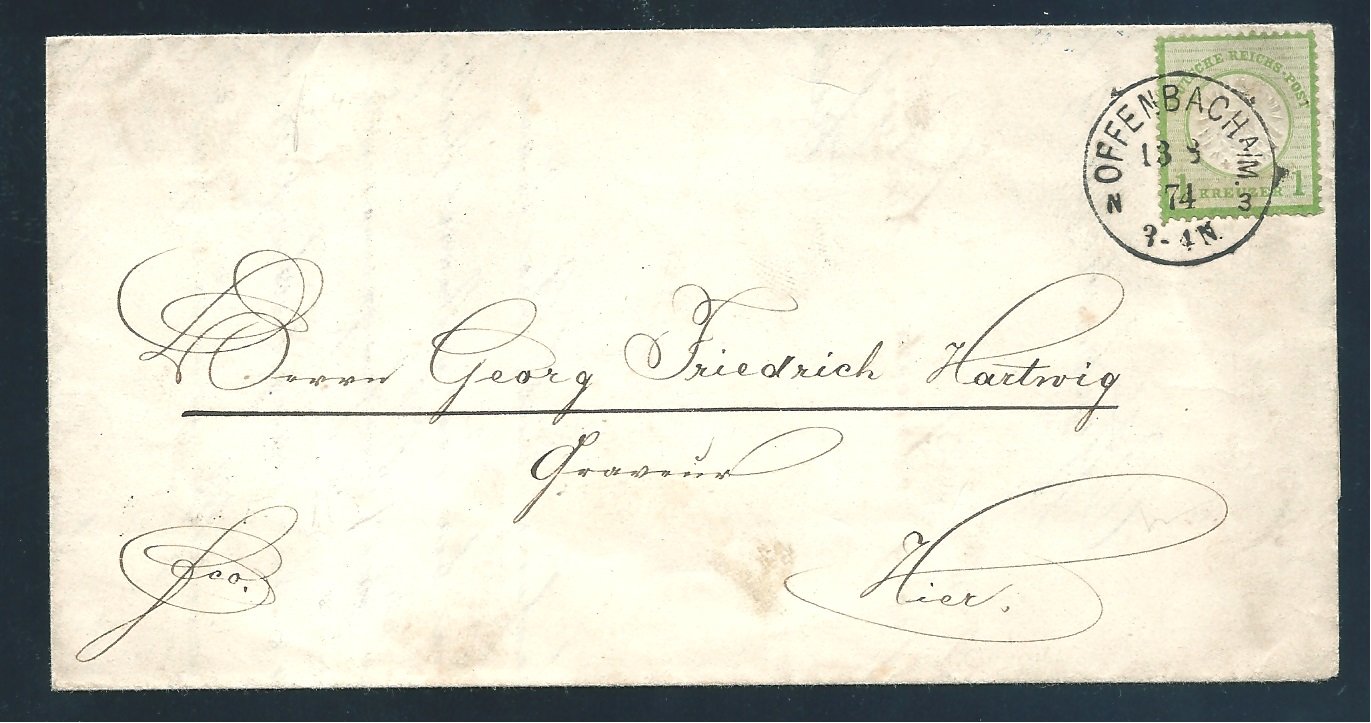 DEUTSCHE REICHS-POST
1 KREUZER 1
OFFENBACH A/M.
13 8
N 74 3
3-4N.
Herrn Georg Friedrich Hartwig
Graveur
fco.
Hier.